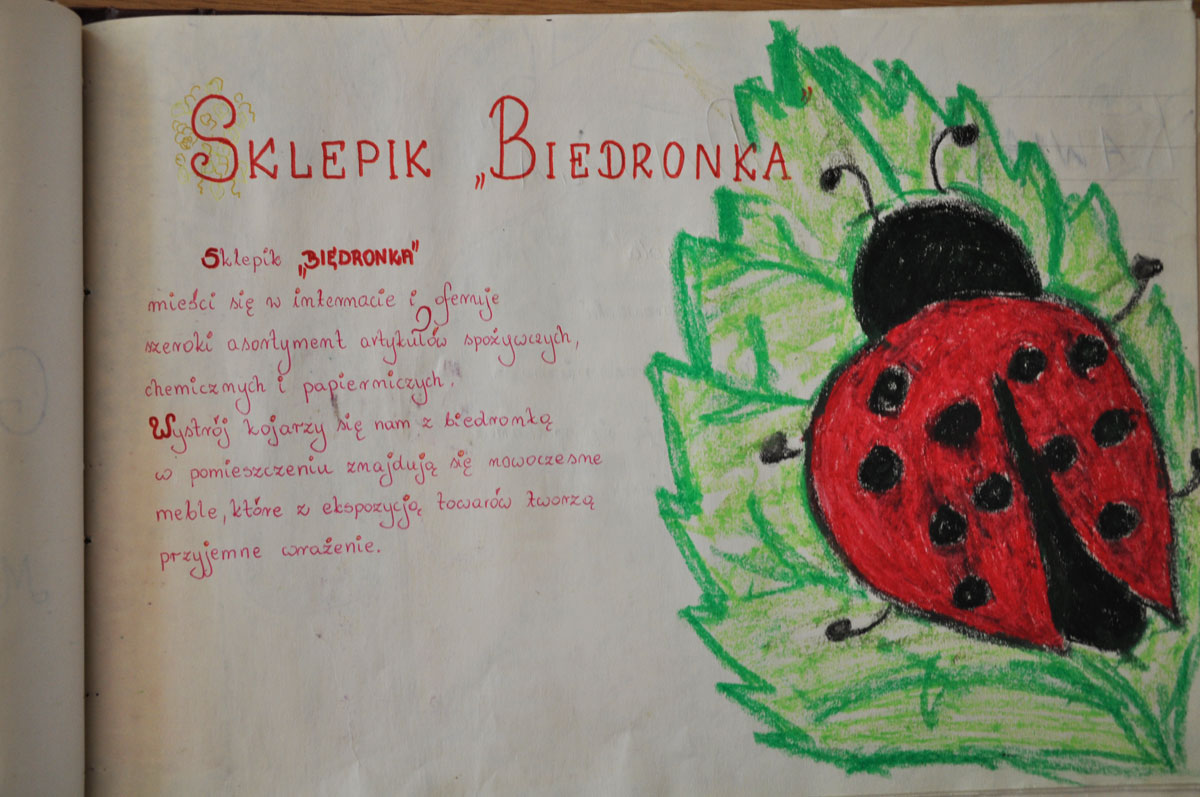 SKLEPIK „BIEDRONKA”
Sklepik „BIĘDRONKA”
mieści się w internacie i oferuje
szeroki asortyment artykułów spożywczych,
chemicznych i papierniczych.
Wystrój kojarzy się nam z biedronką
w pomieszczeniu znajdują się nowoczesne
meble, które z ekspozycją towarów tworzą
przyjemne wrażenie.